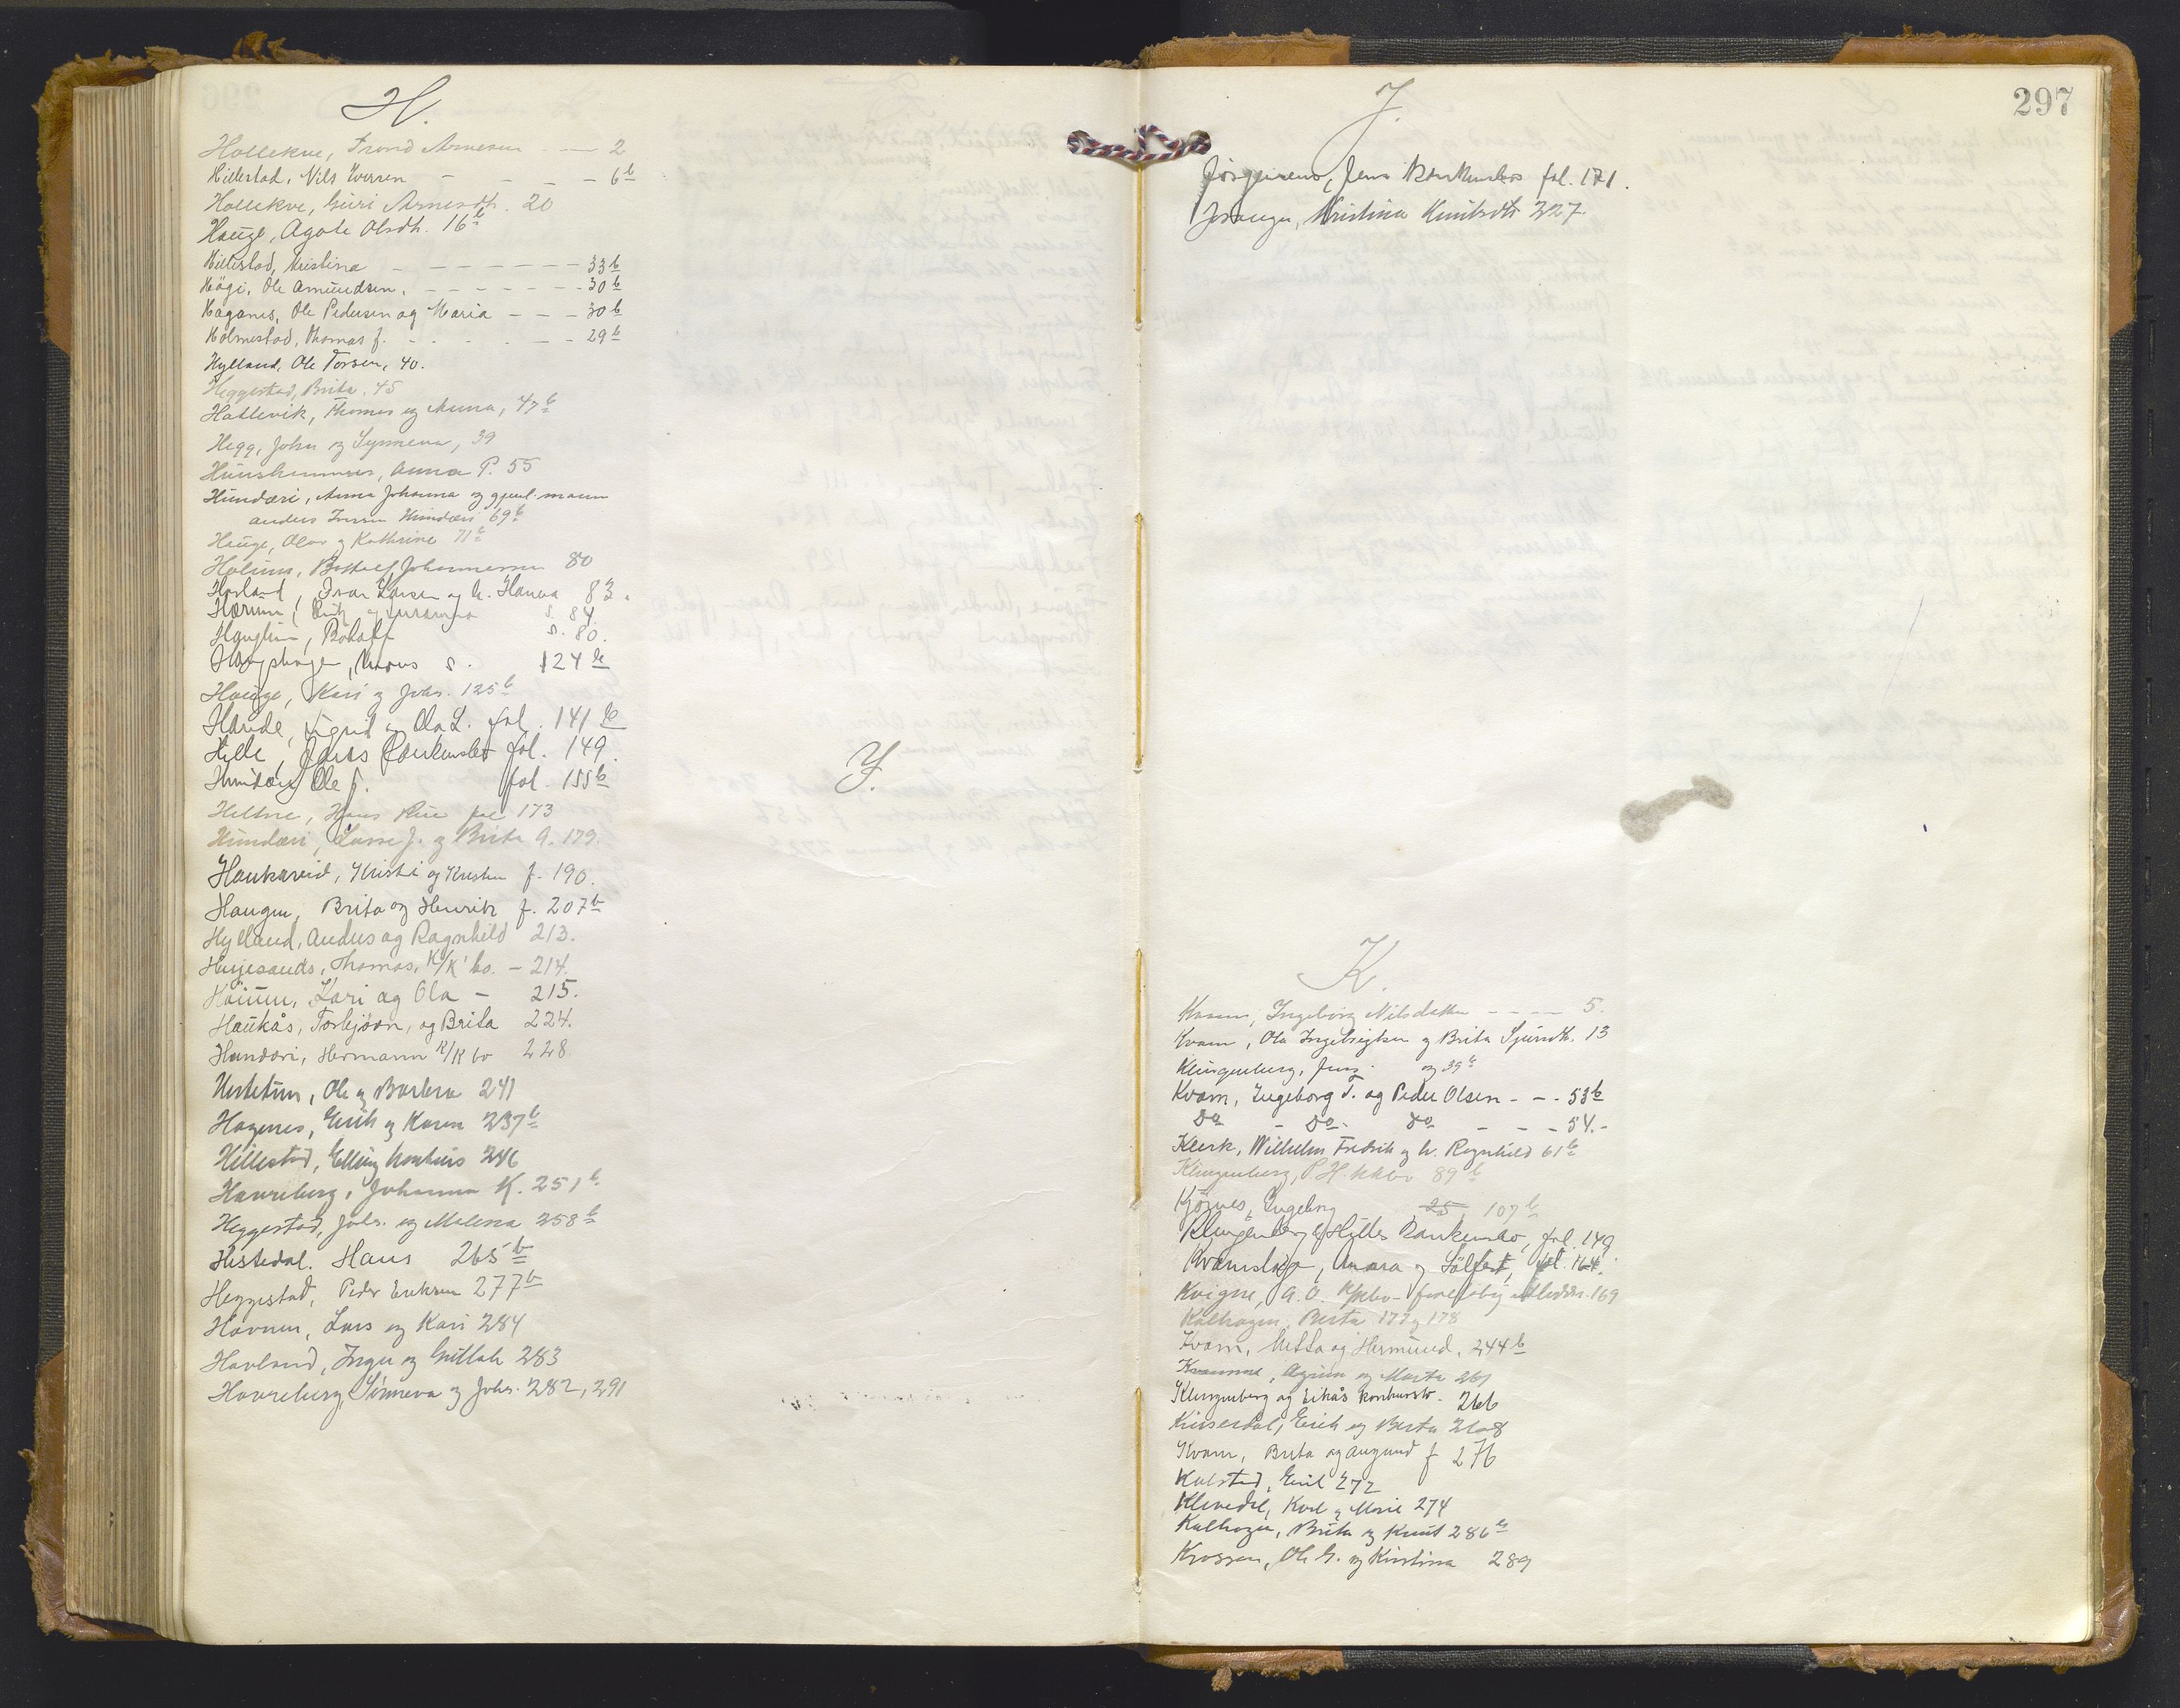 H.
Hollekve, Trond Arnesen - - 2
Hillestad, Nils Iversen - - - - 6b
Hollekve, Guri Arnesdt. 20
Hauge, Agate Olsdt. 16b
Hillestad, Kristina - - - - - - - 33b
Högi, Ole Amundsen, - - - - - - - 30b
Haganes, Ole Pedersen og Maria - - - 30b
Holmestad, Thomas J. - - - - - - 29b
Hylland, Ole Torsen, 40.
Heggestad, Brita, 45
Hatlevik, Thomas og Anna, 47b
Hegg, John og Synneva, 39
Anna P. 55
Hundæri, Anna Johanna og gjenl. mann
Anders Iversen Hundæri 69b
Hauge, Olav og Kathrine 71b
Holum, Botolf Johannesen 80
Horland, Ivar Larsen og h. Hanna 83.
Hærum, og s. 84.
Hauglum, Botolf s. 80.
s. 124b
Hauge, Kari og Johs. 125b
Sigrid og Ola L. fol. 141b
Hylle, Jens Konkursbo fol. 149.
Hundæri Ole J. fol. 155b
Heltne, Hans fol 173
Hundæri, Lasse J. og Brita A. 179.
Haukareid, Kristi og Kristen f. 190.
Haugen, Brita og Henrik f. 207b
Hylland, Anders og Ragnhild 213.
Husjesunds, Thomas, K/K' bo. - 214.
Kari og Ola - 215.
Haukås, Torbjørn, og Brita 224.
Hundæri, Hermann K/K bo 228
Hestetun, Ole og Barbra 241
Hagenes, Erik og Karen 237b
Hillestad, Elling Konkurs 246
Havreberg, Johanna K. 251b
Heggestad, Johs. og Malena 258b
Histedal. Hans 265b
Heggestad, Peder Eriksen 277b
Havnen, Lars og Kari 284
Havland, Inger og Guttak 283
Havreberg, Sünneva og Johs. 282, 291
Y.
297
J.
Jørgensens, Jens Konkursbo fol. 171.
Josanger, Kristina Knutsdtr 227.
K.
Kvam, Ingeborg Nilsdatter - - - - 5.
Kvam, Ola Ingebrigtsen og Brita Sjursdt. 13
Klingenberg, Jens og 39b
Kvam, Ingeborg T. og Peder Olsen - - - 53b
Do - Do - Do - - - 54. -
Klerk, Wilhelm Fredrik og h. Ragnhild 61b
Klingenberg, P.H. kkbo 89b
Kjörnes, Ingeborg 25, 107b
Klingenberg & Hylles Konkursbo, fol. 149.
Anna og Sölfest, fol. 164.
Kvigne, A. O. K/kbo - foreløbig utloddn. 169
Kalhagen, Berta 177 og 178
Kvam, Metta og Hermund, 244b
Kvamme, og Marta 261
Klingenberg og Eikås konkursbo. 266
Kinserdal, Erik og Berta 268
Kvam, Brita og Augund f 276
Kalstad, Emil 272
Klevedal, Karl og Marie 274
Kalhagen, Brita og Knut 286b
Krossen, Ole G. og Kristina 289